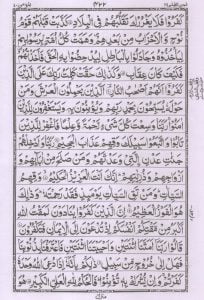 ۴۲۲
كَفَرُوْا فَلَا يَغْرُرْكَ تَقَلُّبُهُمْ فِي الْبِلَادِ كَذَّبَتْ قَبْلَهُمْ قَوْمُ
نُوْحٍ وَّالْاَحْزَابُ مِنْ بَعْدِهِمْ وَهَمَّتْ كُلُّ اُمَّةٍ بِرَسُوْلِهِمْ
لِيَاْخُذُوْهُ وَجَادَلُوْا بِالْبَاطِلِ لِيُدْحِضُوْا بِهِ الْحَقَّ فَاَخَذْتُهُمْ
فَكَيْفَ كَانَ عِقَابِ وَكَذٰلِكَ حَقَّتْ كَلِمَتُ رَبِّكَ عَلَى الَّذِيْنَ
كَفَرُوْٓا اَنَّهُمْ اَصْحٰبُ النَّارِ اَلَّذِيْنَ يَحْمِلُوْنَ الْعَرْشَ وَمَنْ
حَوْلَهٗ يُسَبِّحُوْنَ بِحَمْدِ رَبِّهِمْ وَيُؤْمِنُوْنَ بِهٖ وَيَسْتَغْفِرُوْنَ لِلَّذِيْنَ
اٰمَنُوْا رَبَّنَا وَسِعْتَ كُلَّ شَيْءٍ رَّحْمَةً وَّعِلْمًا فَاغْفِرْ لِلَّذِيْنَ
تَابُوْا وَاتَّبَعُوْا سَبِيْلَكَ وَقِهِمْ عَذَابَ الْجَحِيْمِ رَبَّنَا وَاَدْخِلْهُمْ
جَنّٰتِ عَدْنِ الَّتِيْ وَعَدْتَّهُمْ وَمَنْ صَلَحَ مِنْ اٰبَآئِهِمْ
وَاَزْوَاجِهِمْ وَذُرِّيّٰتِهِمْ اِنَّكَ اَنْتَ الْعَزِيْزُ الْحَكِيْمُ وَقِهِمُ
السَّيِّاٰتِ وَمَنْ تَقِ السَّيِّاٰتِ يَوْمَئِذٍ فَقَدْ رَحِمْتَهٗ وَذٰلِكَ
هُوَ الْفَوْزُ الْعَظِيْمُ اِنَّ الَّذِيْنَ كَفَرُوْا يُنَادَوْنَ لَمَقْتُ اللّٰهِ
اَكْبَرُ مِنْ مَّقْتِكُمْ اَنْفُسَكُمْ اِذْ تُدْعَوْنَ اِلَى الْاِيْمَانِ فَتَكْفُرُوْنَ
قَالُوْا رَبَّنَآ اَمَتَّنَا اثْنَتَيْنِ وَاَحْيَيْتَنَا اثْنَتَيْنِ فَاعْتَرَفْنَا بِذُنُوْبِنَا
فَهَلْ اِلٰى خُرُوْجٍ مِّنْ سَبِيْلٍ ذٰلِكُمْ بِاَنَّهٗٓ اِذَا دُعِيَ اللّٰهُ وَحْدَهٗ
كَفَرْتُمْ وَاِنْ يُّشْرَكْ بِهٖ تُؤْمِنُوْا فَالْحُكْمُ لِلّٰهِ الْعَلِيِّ الْكَبِيْرِ هُوَ